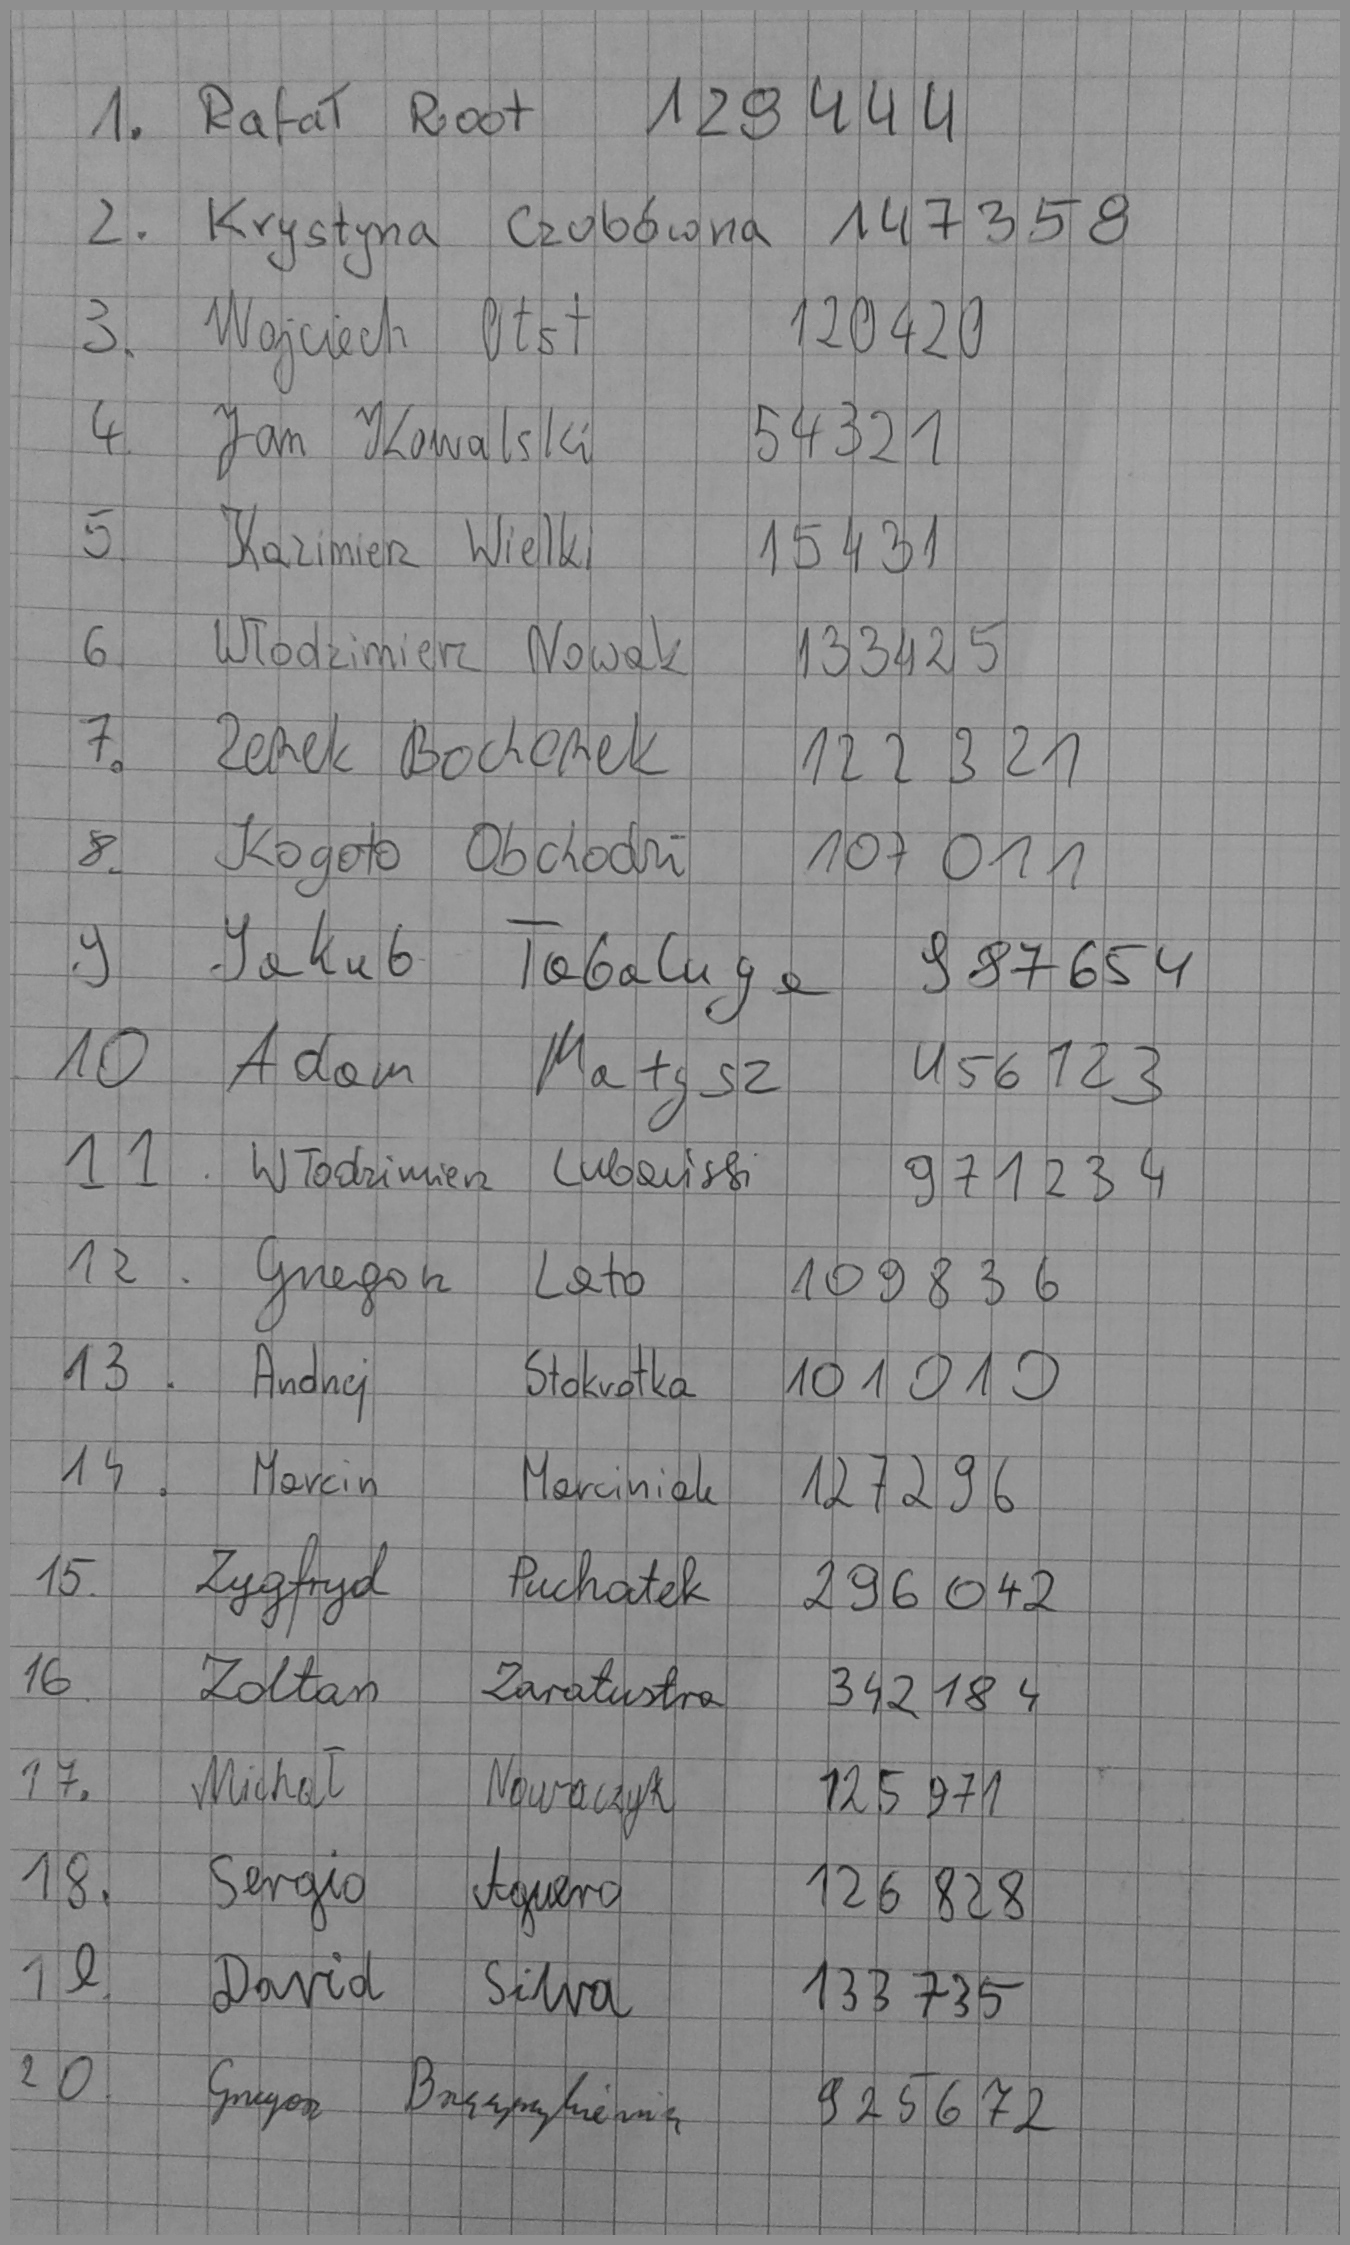 1. Rafał Root 129444
2. Krystyna Czubówna 147358
3. Wojciech Otst 120420
4. Jan Kowalski 54321
5. Kazimierz Wielki 15431
6. Włodzimierz Nowak 133425
7. Zenek Bochenek 122321
8. Kogoto Obchodzi 107011
9 Jakub Tabaluga 987654
10 Adam Małysz 456123
11. Włodzimierz 971234
12. Grzegorz Lato 109836
13. Andrzej Stokrotka 101010
14. Marcin Marciniak 127296
15. Zygfryd Puchatek 296042
16. Zoltan Zaratustra 342184
17. Michał Nowaczyk 125971
18. Sergio Aguero 126828
19. David Silva 133735
20. Grzegorz 925672